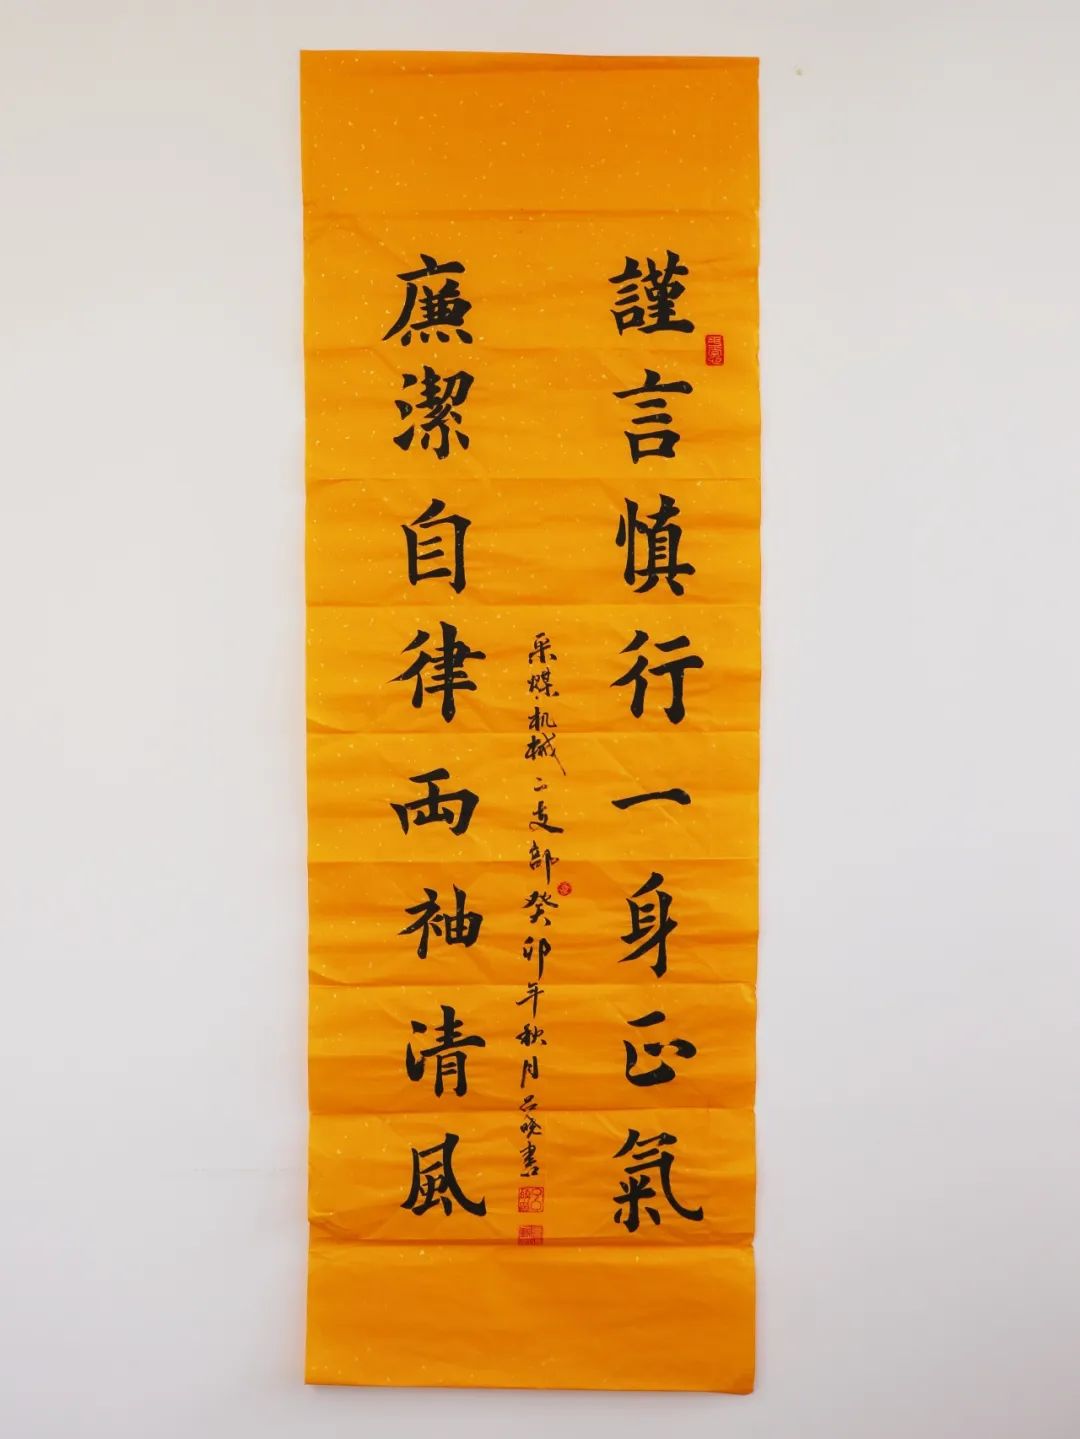 謹言慎行一身正氣
廉潔自律兩袖清風
采煤机械二支部癸卯年秋月吕晓書